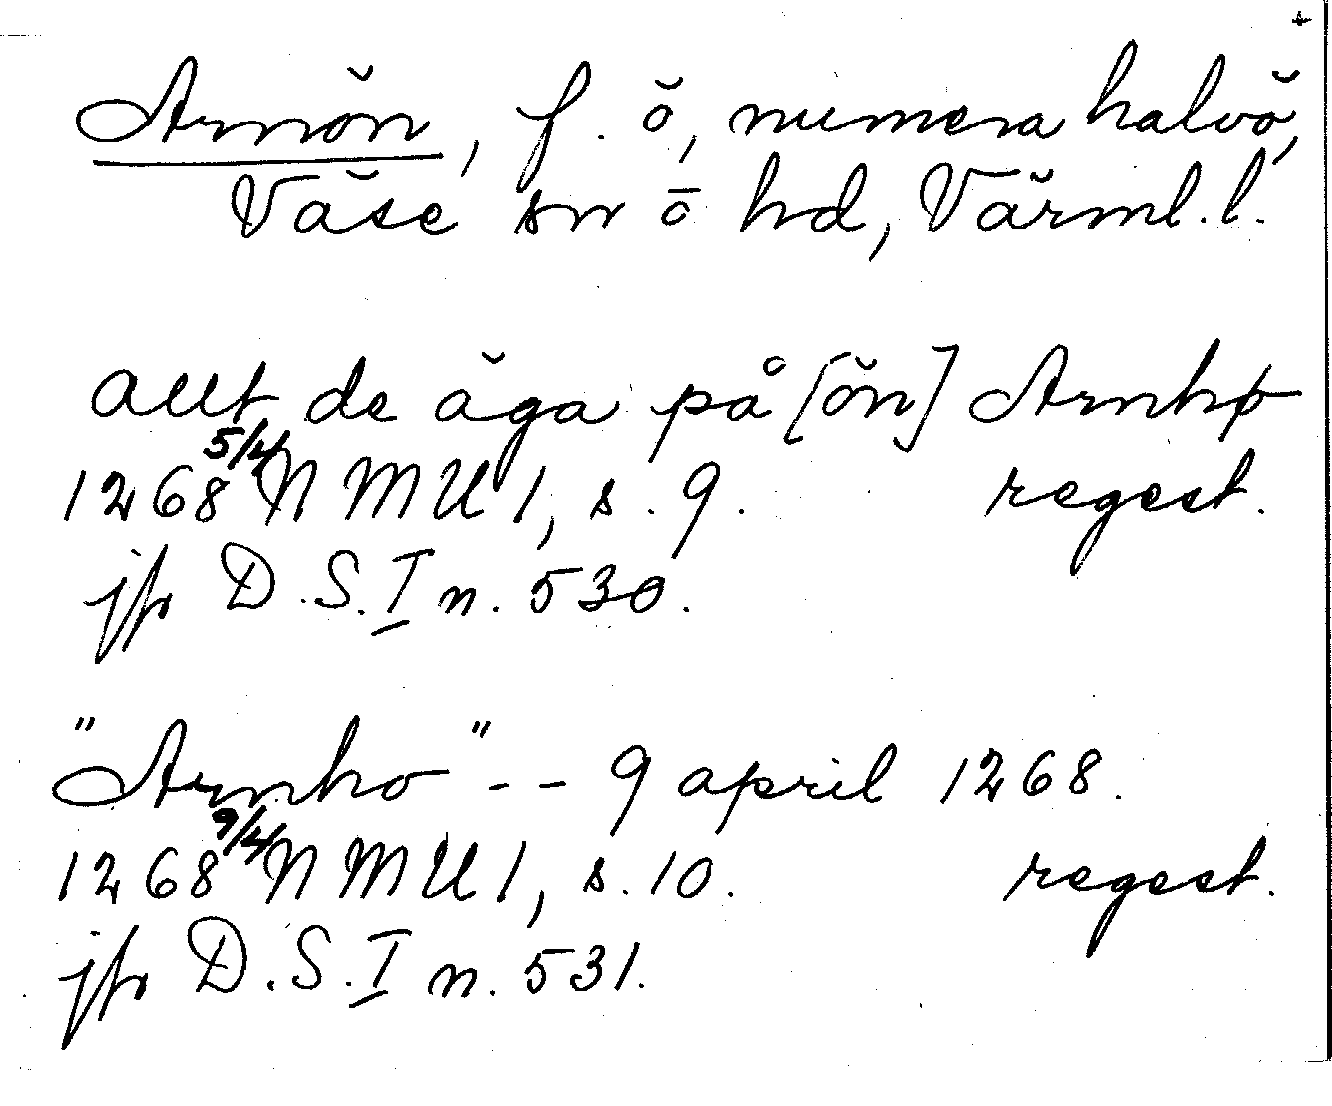 Arnön, f. ö, numera halvö,
Väse sn ö hd, Värml. l.
allt de äga på [ön] Arnhø
1268 5/4 NMU 1, s. 9. regest.
jfr D.S.I n. 530.
"Arnho" -- 9 april 1268.
1268 9/4 NMU 1, s. 10. regest.
jfr D.S.I n. 531.